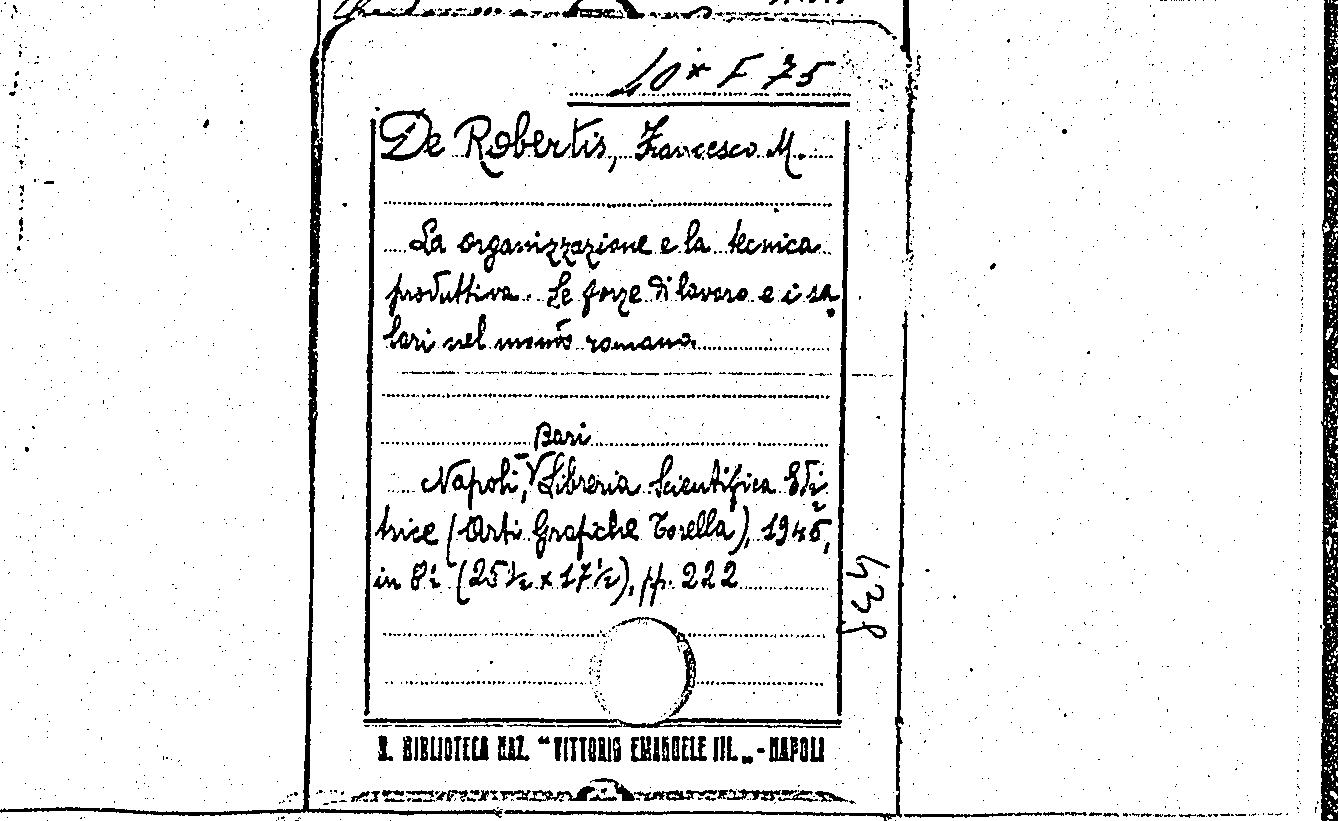 10* F 75
De Robertis, Francesco M.
La organizzazione e la tecnica
produttiva. Le forze di lavoro e i sa
lari nel mondo romano.
Bari
Napoli, V Libreria Scientifica Edi
trice (Arti Grafiche Torella), 1946,
in 8º (25½ x 17½), pp. 222
438
R. BIBLIOTECA NAZ. "VITTORIO EMANUELE III. „ - NAPOLI